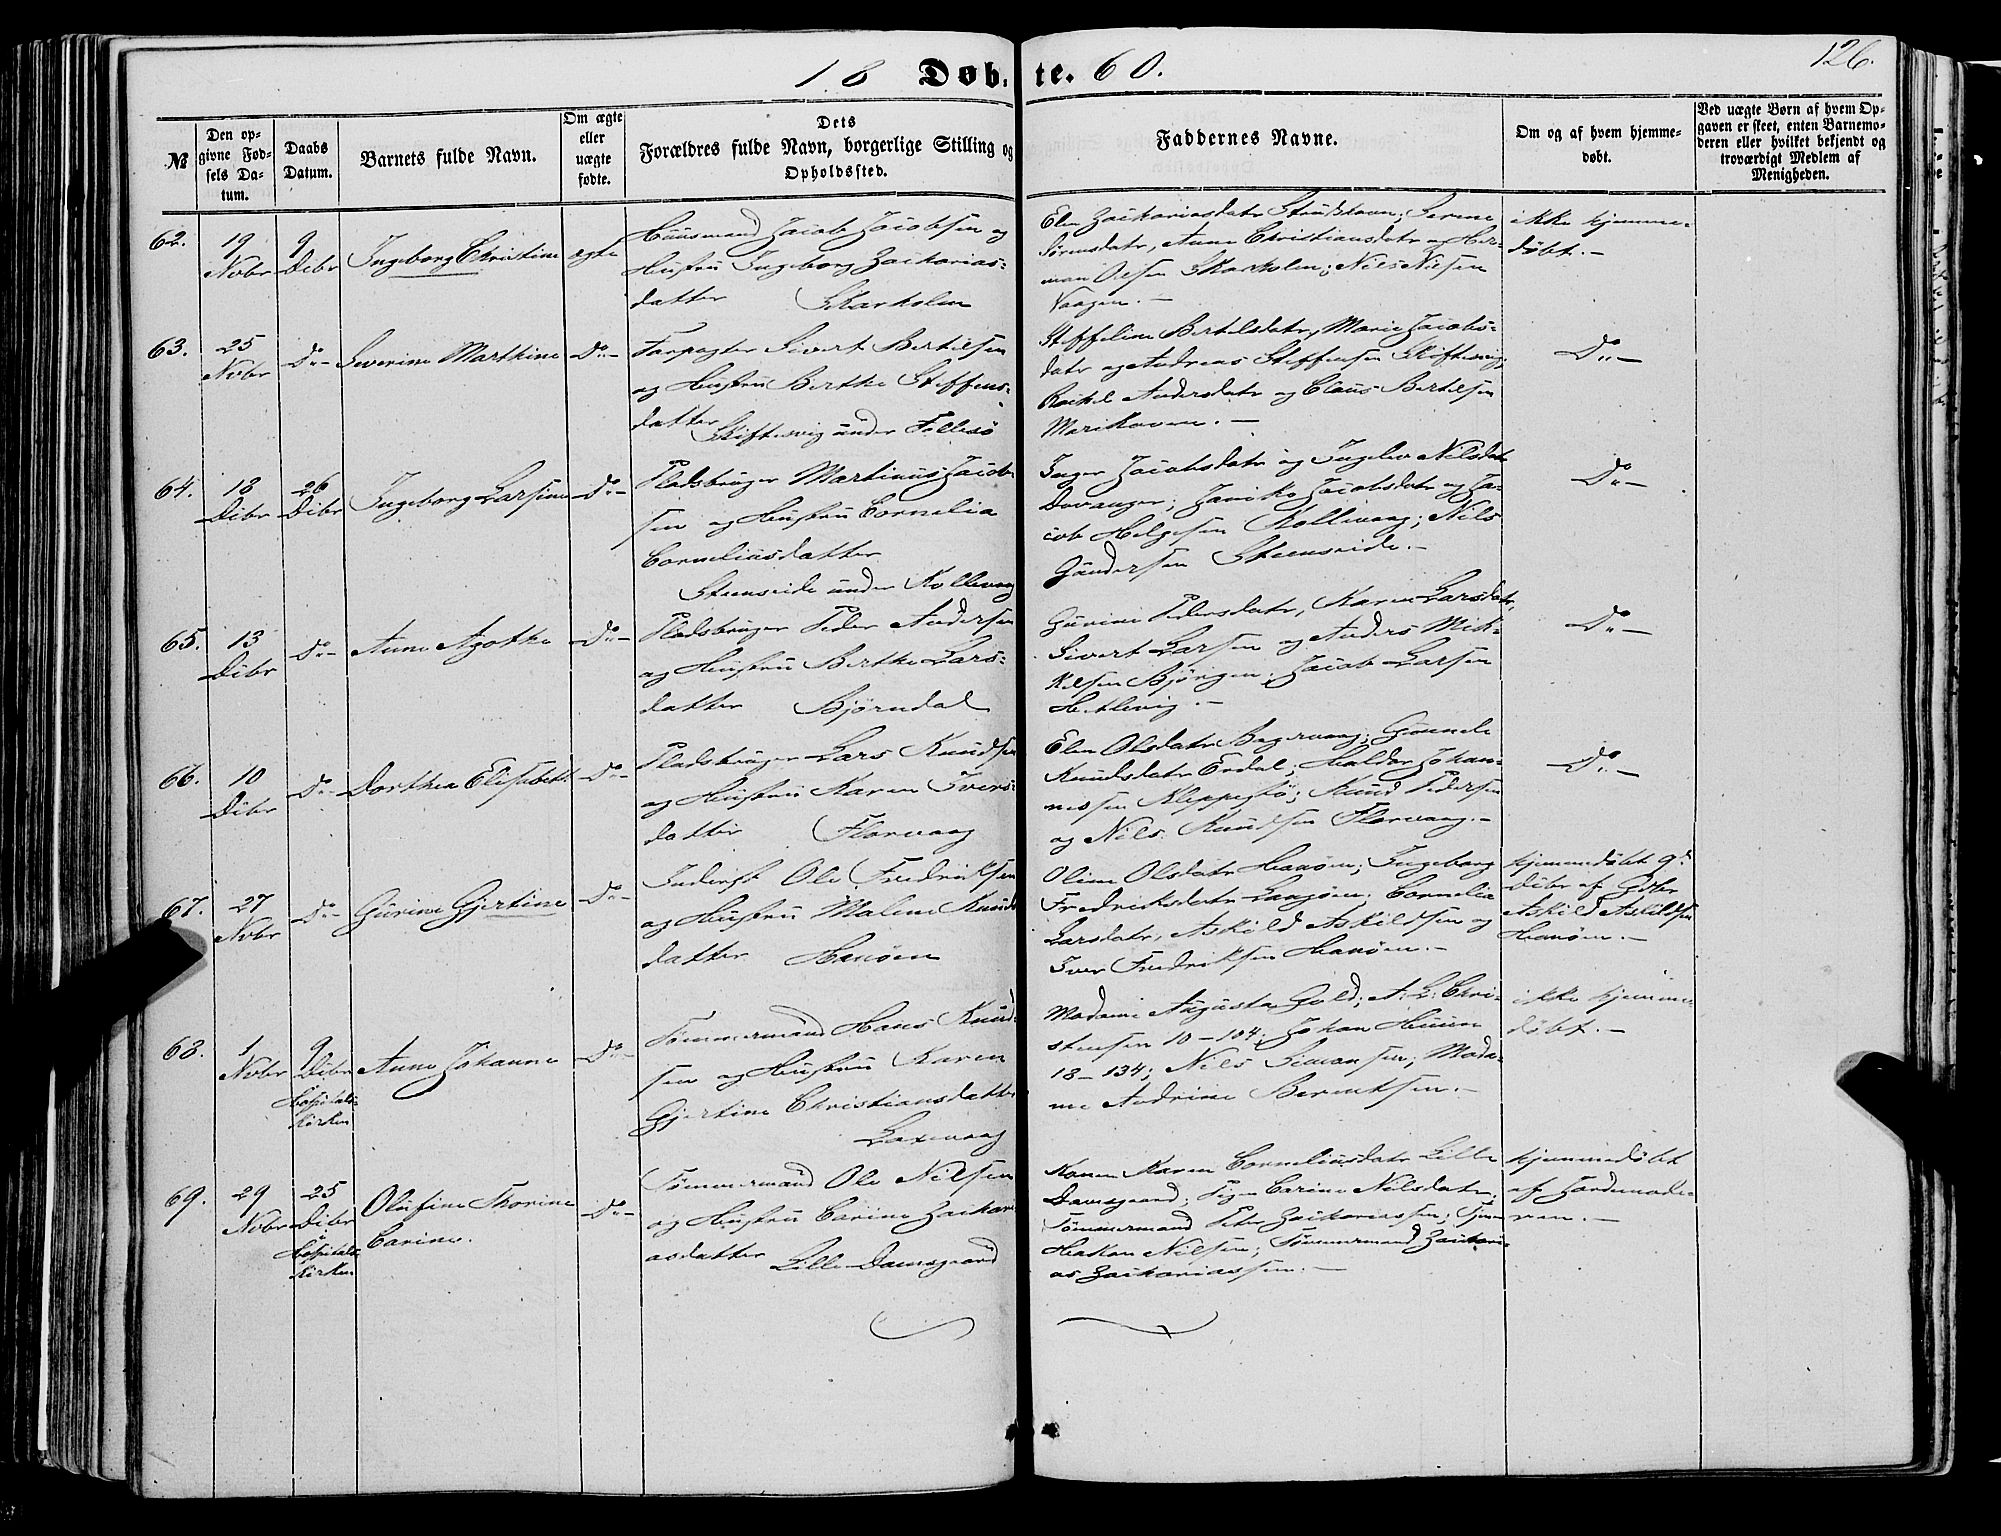 126.
18 Døb- te. 60.
No
Den op-
givne Fød-
sels Da-
tum.
Daabs
Datum.
Barnets fulde Navn.
Om ægte
eller
uægte
fødte.
Dets
Forældres fulde Navn, borgerlige Stilling og
Opholdssted.
Faddernes Navne.
Om og af hvem hjemme-
døbt.
Ved uægte Børn af hvem Op-
gaven er skeet, enten Barnemo-
deren eller hvilket bekjendt og
troværdigt Medlem af
Menigheden.
62. 19 Nvbr 9 Dcbr Ingeborg Christine ægte
Huusmand Jacob Jacobsen og
Hustru Ingeborg Zacharias-
datter Skarholm
Elen Zachariasdatr Strushavn; Serene
Sørensdatr, Anne Christiansdatr og Her-
man Olsen Skarholm; Nils Nilsen
Vaagen.-
ikke hjemme-
døbt.-
63. 25 Nvbr Do- Severine Marthine Do-
Forpagter Sivert Bertelsen
og Hustru Berthe Steffens-
datter
Skiftesvig under Follesø
Steffeline Bertelsdatr, Marie Jacobs-
datr og Andreas Steffensen Skiftesvig,
Rachel Andersdatr og Claus Bertelsen
Marikoven.-
Do-
64. 18 Dcbr 26 Dcbr Ingeborg Larsine Do-
Pladsbruger Martinus Jacob-
sen og Hustru Cornelia
Corneliusdatter
Steenseide under Kollevaag
Inger Jacobsdatr og Ingelev Nilsdatr
Davanger; Janike Jacobsdatr og Ja-
cob Helgesen Kollevaag; Nils
Gundersen Steenseide.-
Do-
65. 13 Dcbr Do- Anne Agathe Do-
Pladsbruger Peder Andersen
og Hustru Berthe Lars-
datter Bjørndal
Gurine Pedersdatr, Karen Larsdatr,
Sivert Larsen og Anders Mik-
kelsen Bjørgen, Jacob Larsen
Hetlevig.-
Do-
66. 10 Dcbr Do- Dorthea Elisabeth Do-
Pladsbruger Lars Knudsen
og Hustru Karen Ivers-
datter Florvaag
Elen Olsdatr Bagervaag; Gunnele
Knudsdatr Erdal; Haldor Johan-
nessen Kleppestø; Knud Pedersen
og Nils Knudsen Florvaag.-
Do-
67. 27 Nvbr Do- Gurine Gjertine Do-
Inderst Ole Fredriksen
og Hustru Malene Knuds
datter Hanøen
Oline Olsdatr Hanøen; Ingeborg
Fredriksdatr Langøen; Cornelia
Larsdatr, Askild Askildsen og
Iver Fredriksen Hanøen.-
hjemmedøbt 9d
Dcbr af Gdbr
Askild Askildsen
Hanøen.-
68. 1 Nvbr 9 Dcbr Hospitals-
kirken Anne Johanne Do-
Tømmermand Hans Knud-
sen og Hustru Karen
Gjertine Christiansdatter
Laxevaag
Madame Augusta Gold; A: L: Chri-
stensen 10-104; Johan Huun
18-134; Nils Simonsen; Mada-
me Andrine Berentsen.-
ikke hjemme-
døbt.-
69. 29 Nvbr 25 Dcbr Hospitals
kirken Olufine Thorine
Carine. Do-
Tømmermand Ole Nilsen
og Hustru Carine Zachari-
asdatter Lille Damsgaard
Konen Karen Corneliusdatr Lille
Damsgaard; Pigen Carine Nilsdatr;
Tømmermand Peter Zachariassen;
Hakon Nilsen; Tømmermand Zachari-
as Zachariassen.-
hjemmedøbt
af Jordemode-
ren.-